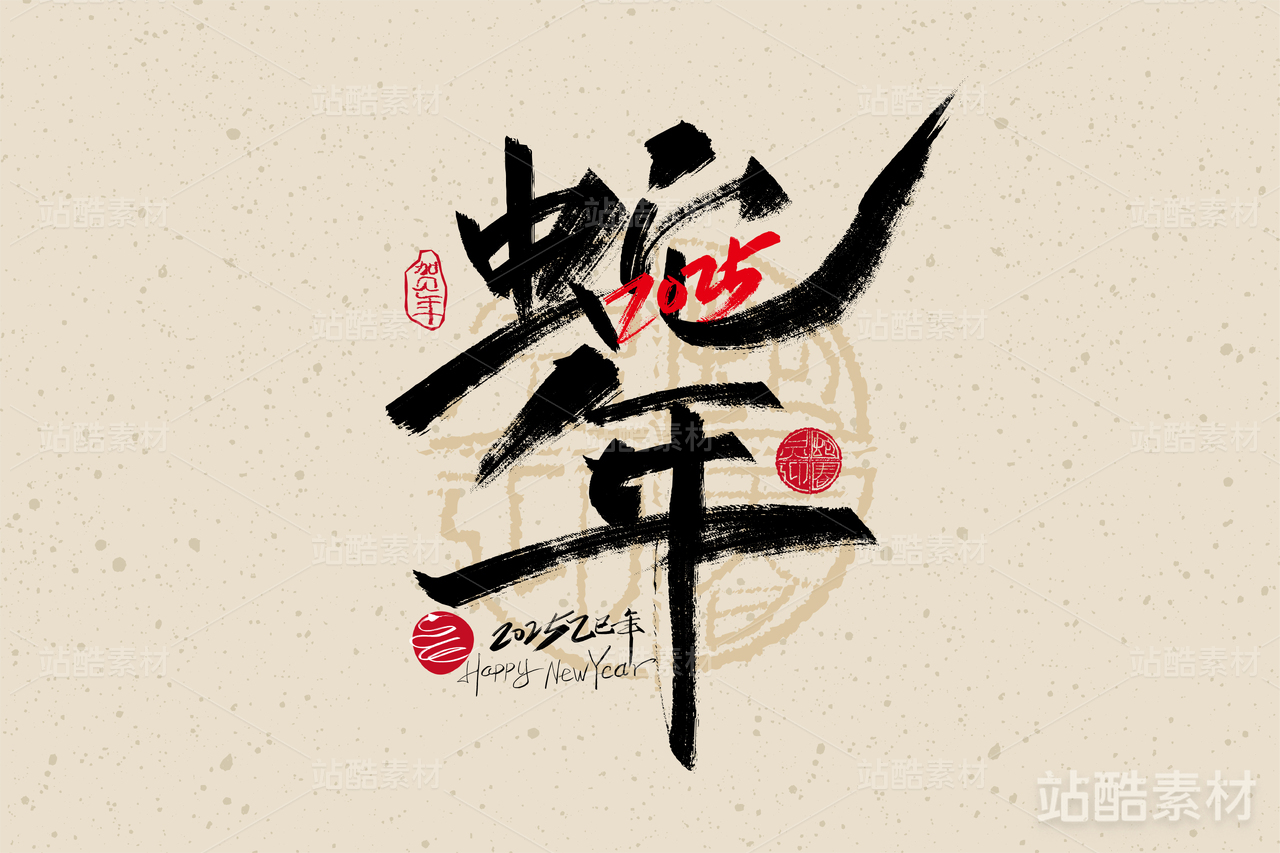 蛇
2025
年
贺年
灵蛇
迎春
2025乙巳年
Happy New Year
站酷素材